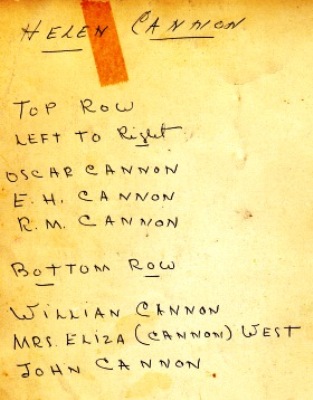 HELEN CANNON
TOP ROW
LEFT TO Right
OSCAR CANNON
E. H. CANNON
R. M. CANNON
BOTTOM ROW
WILLIAN CANNON
MRS. ELIZA (CANNON) WEST
JOHN CANNON